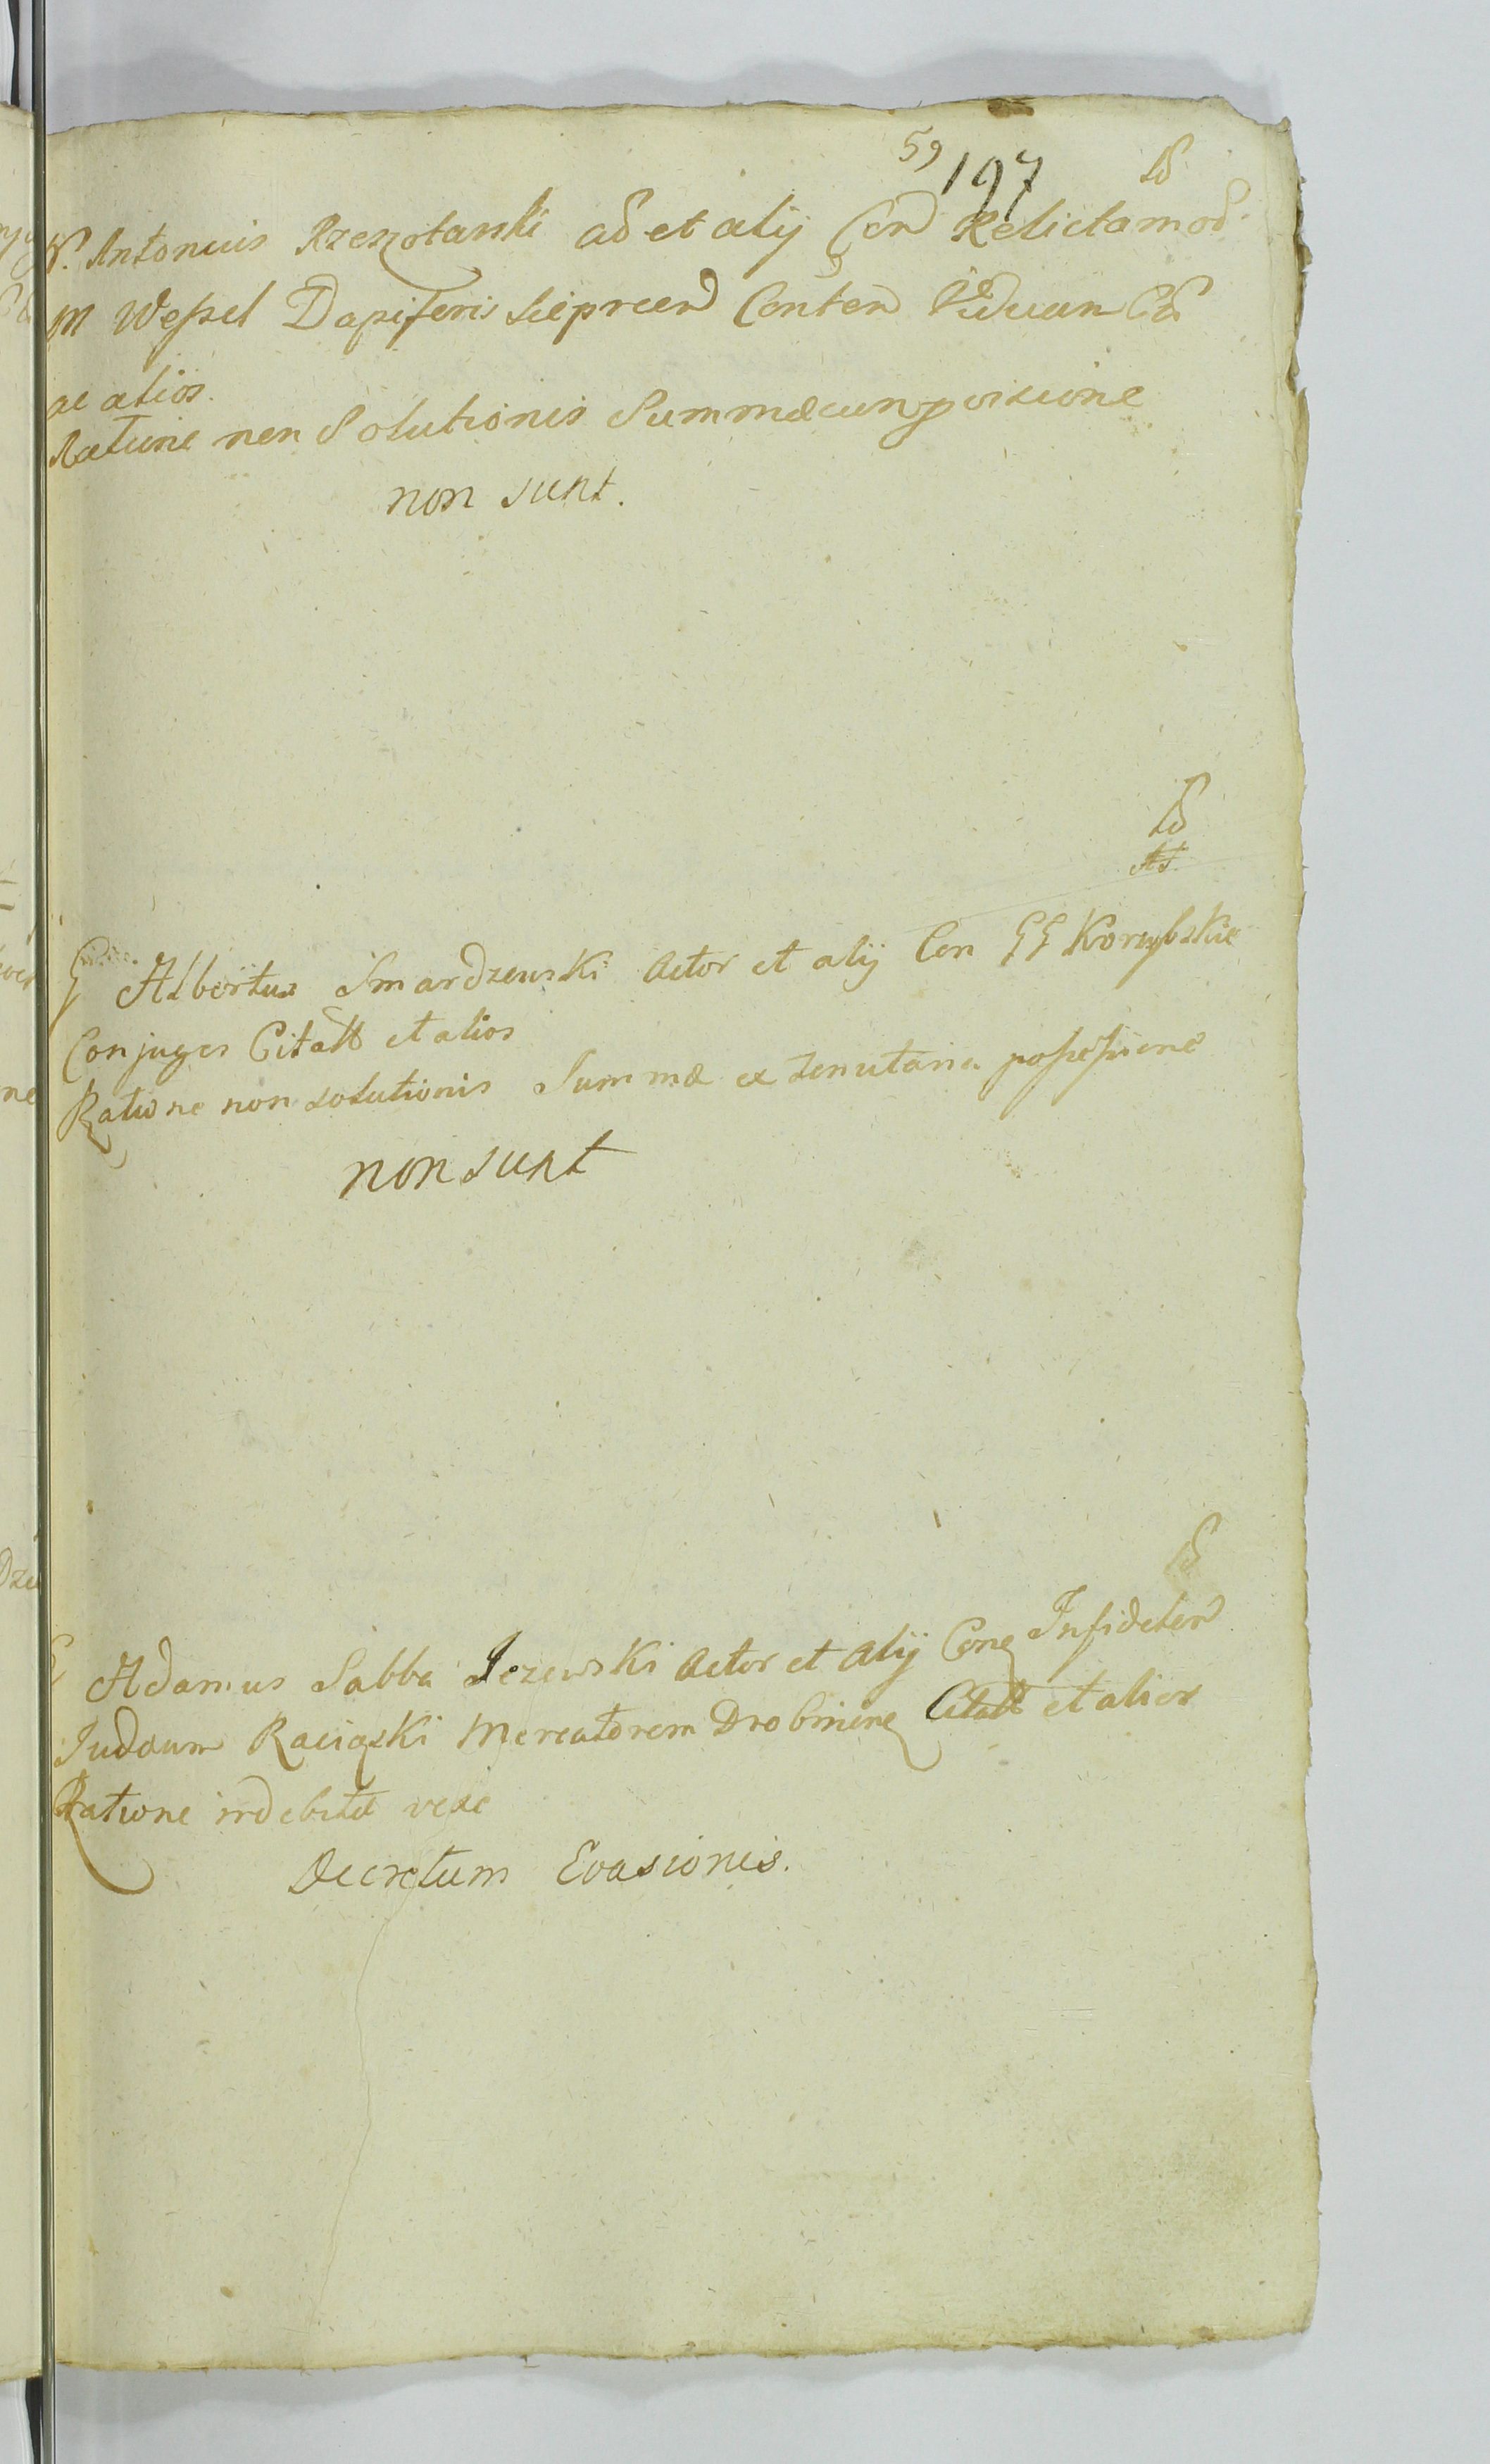 59 197
N. Antonius Rzeszotarski ad et alij Con Relictam od
M Weßel Dapiferis Sieprcen Conten Viduam Cd
ac alios.
Ratione non Solutionis Summae cum provisione
non sunt.
G Albertus Smardzewski Actor et alij Con GG Korzybskie
Conjuges Citatt et alios
Ratione non solutionis Summæ ex tenutaria poßeßione
non sunt
G Adamus Sabba Jezewski Actor et Alij Cong Infidelem
Judæum Raciąski Mercatorem Drobinene Citatt et alios
Ratione indebitæ vexæ
Decretum Evasionis.